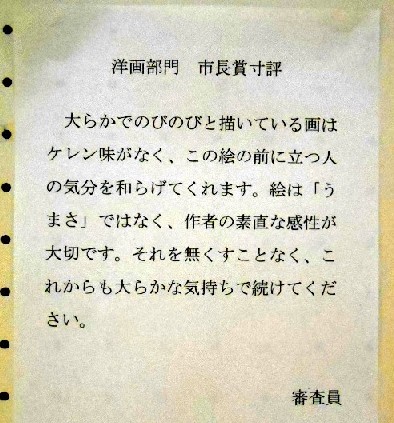 洋画部門　市長賞寸評
　大らかでのびのびと描いている画は
ケレン味がなく、この絵の前に立つ人
の気分を和らげてくれます。絵は「う
まさ」ではなく、作者の素直な感性が
大切です。それを無くすことなく、こ
れからも大らかな気持ちで続けてくだ
さい。
審査員